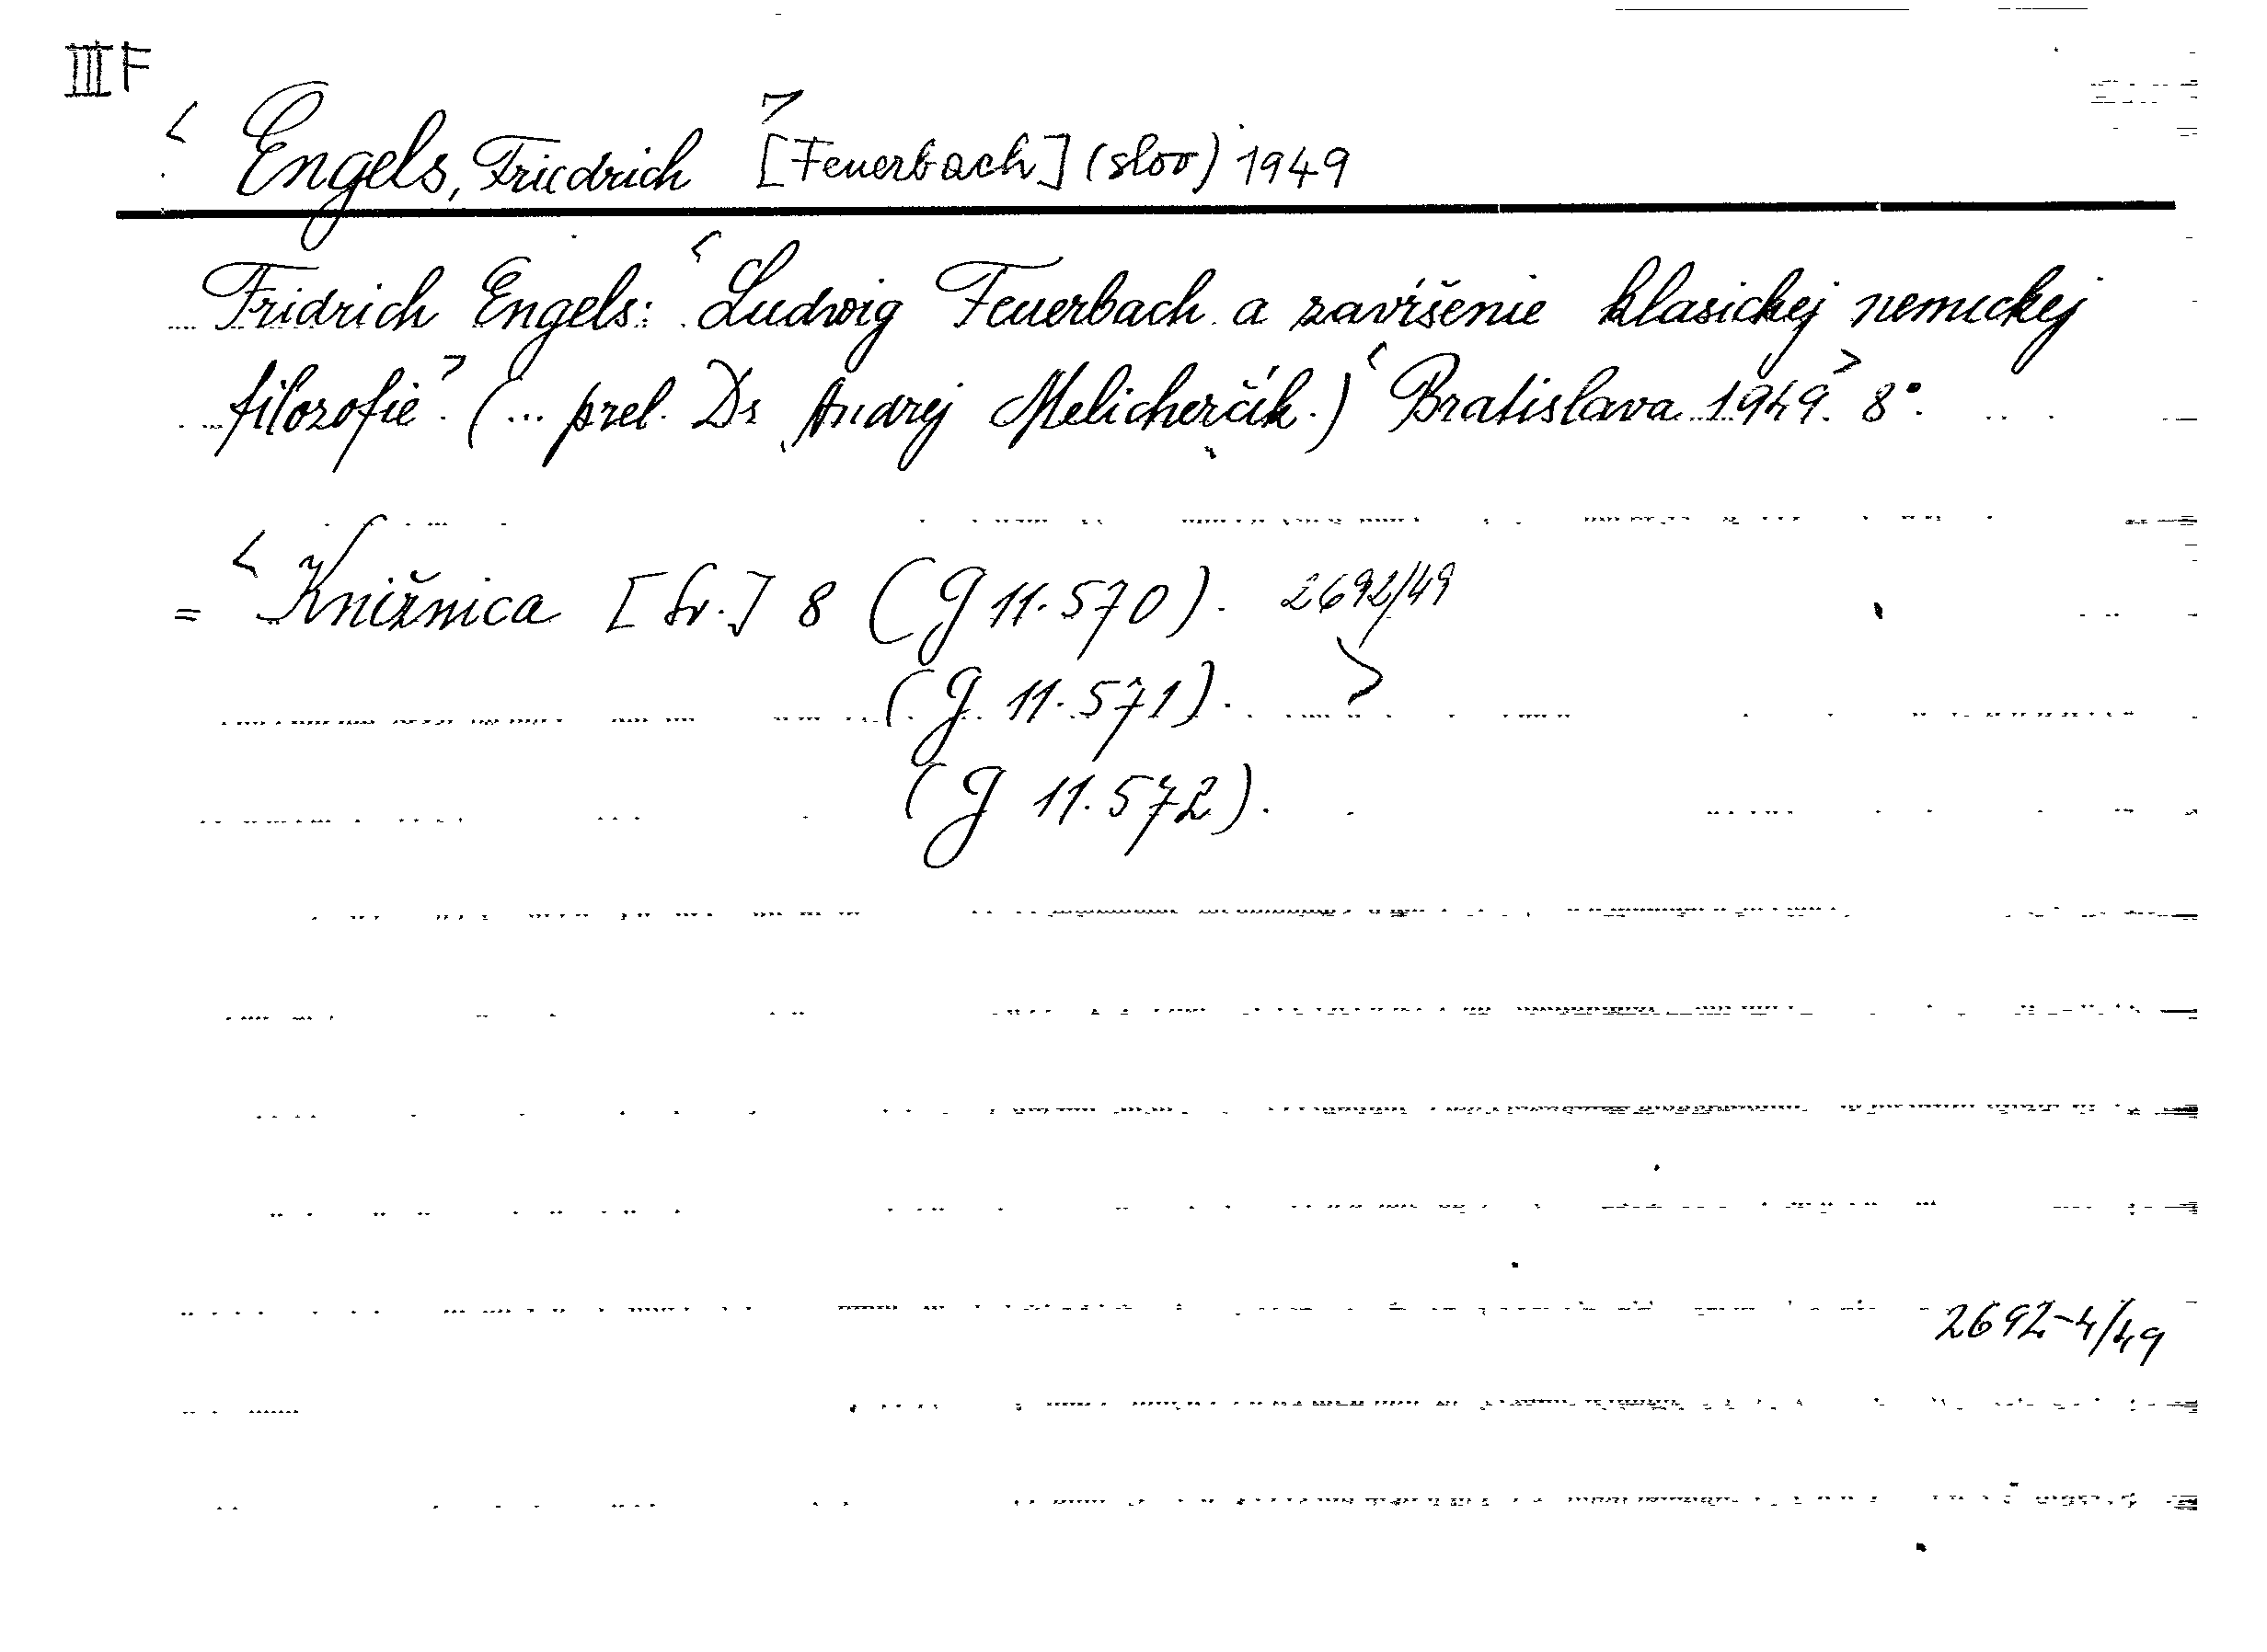 III F
< Engels, Friedrich > [Feuerbach] (slov) 1949
Fridrich Engels: < Ludwig Feuerbach a zavŕšenie klasickej nemeckej
filozofie > . (... prel. Dr Andrej Melicherčík.) < Bratislava 1949 > . 8°.
= < Knižnica [Sv.] 8 (G 11.570). 2692/49
(G 11.571). >
(G 11.572).
2692-4/49